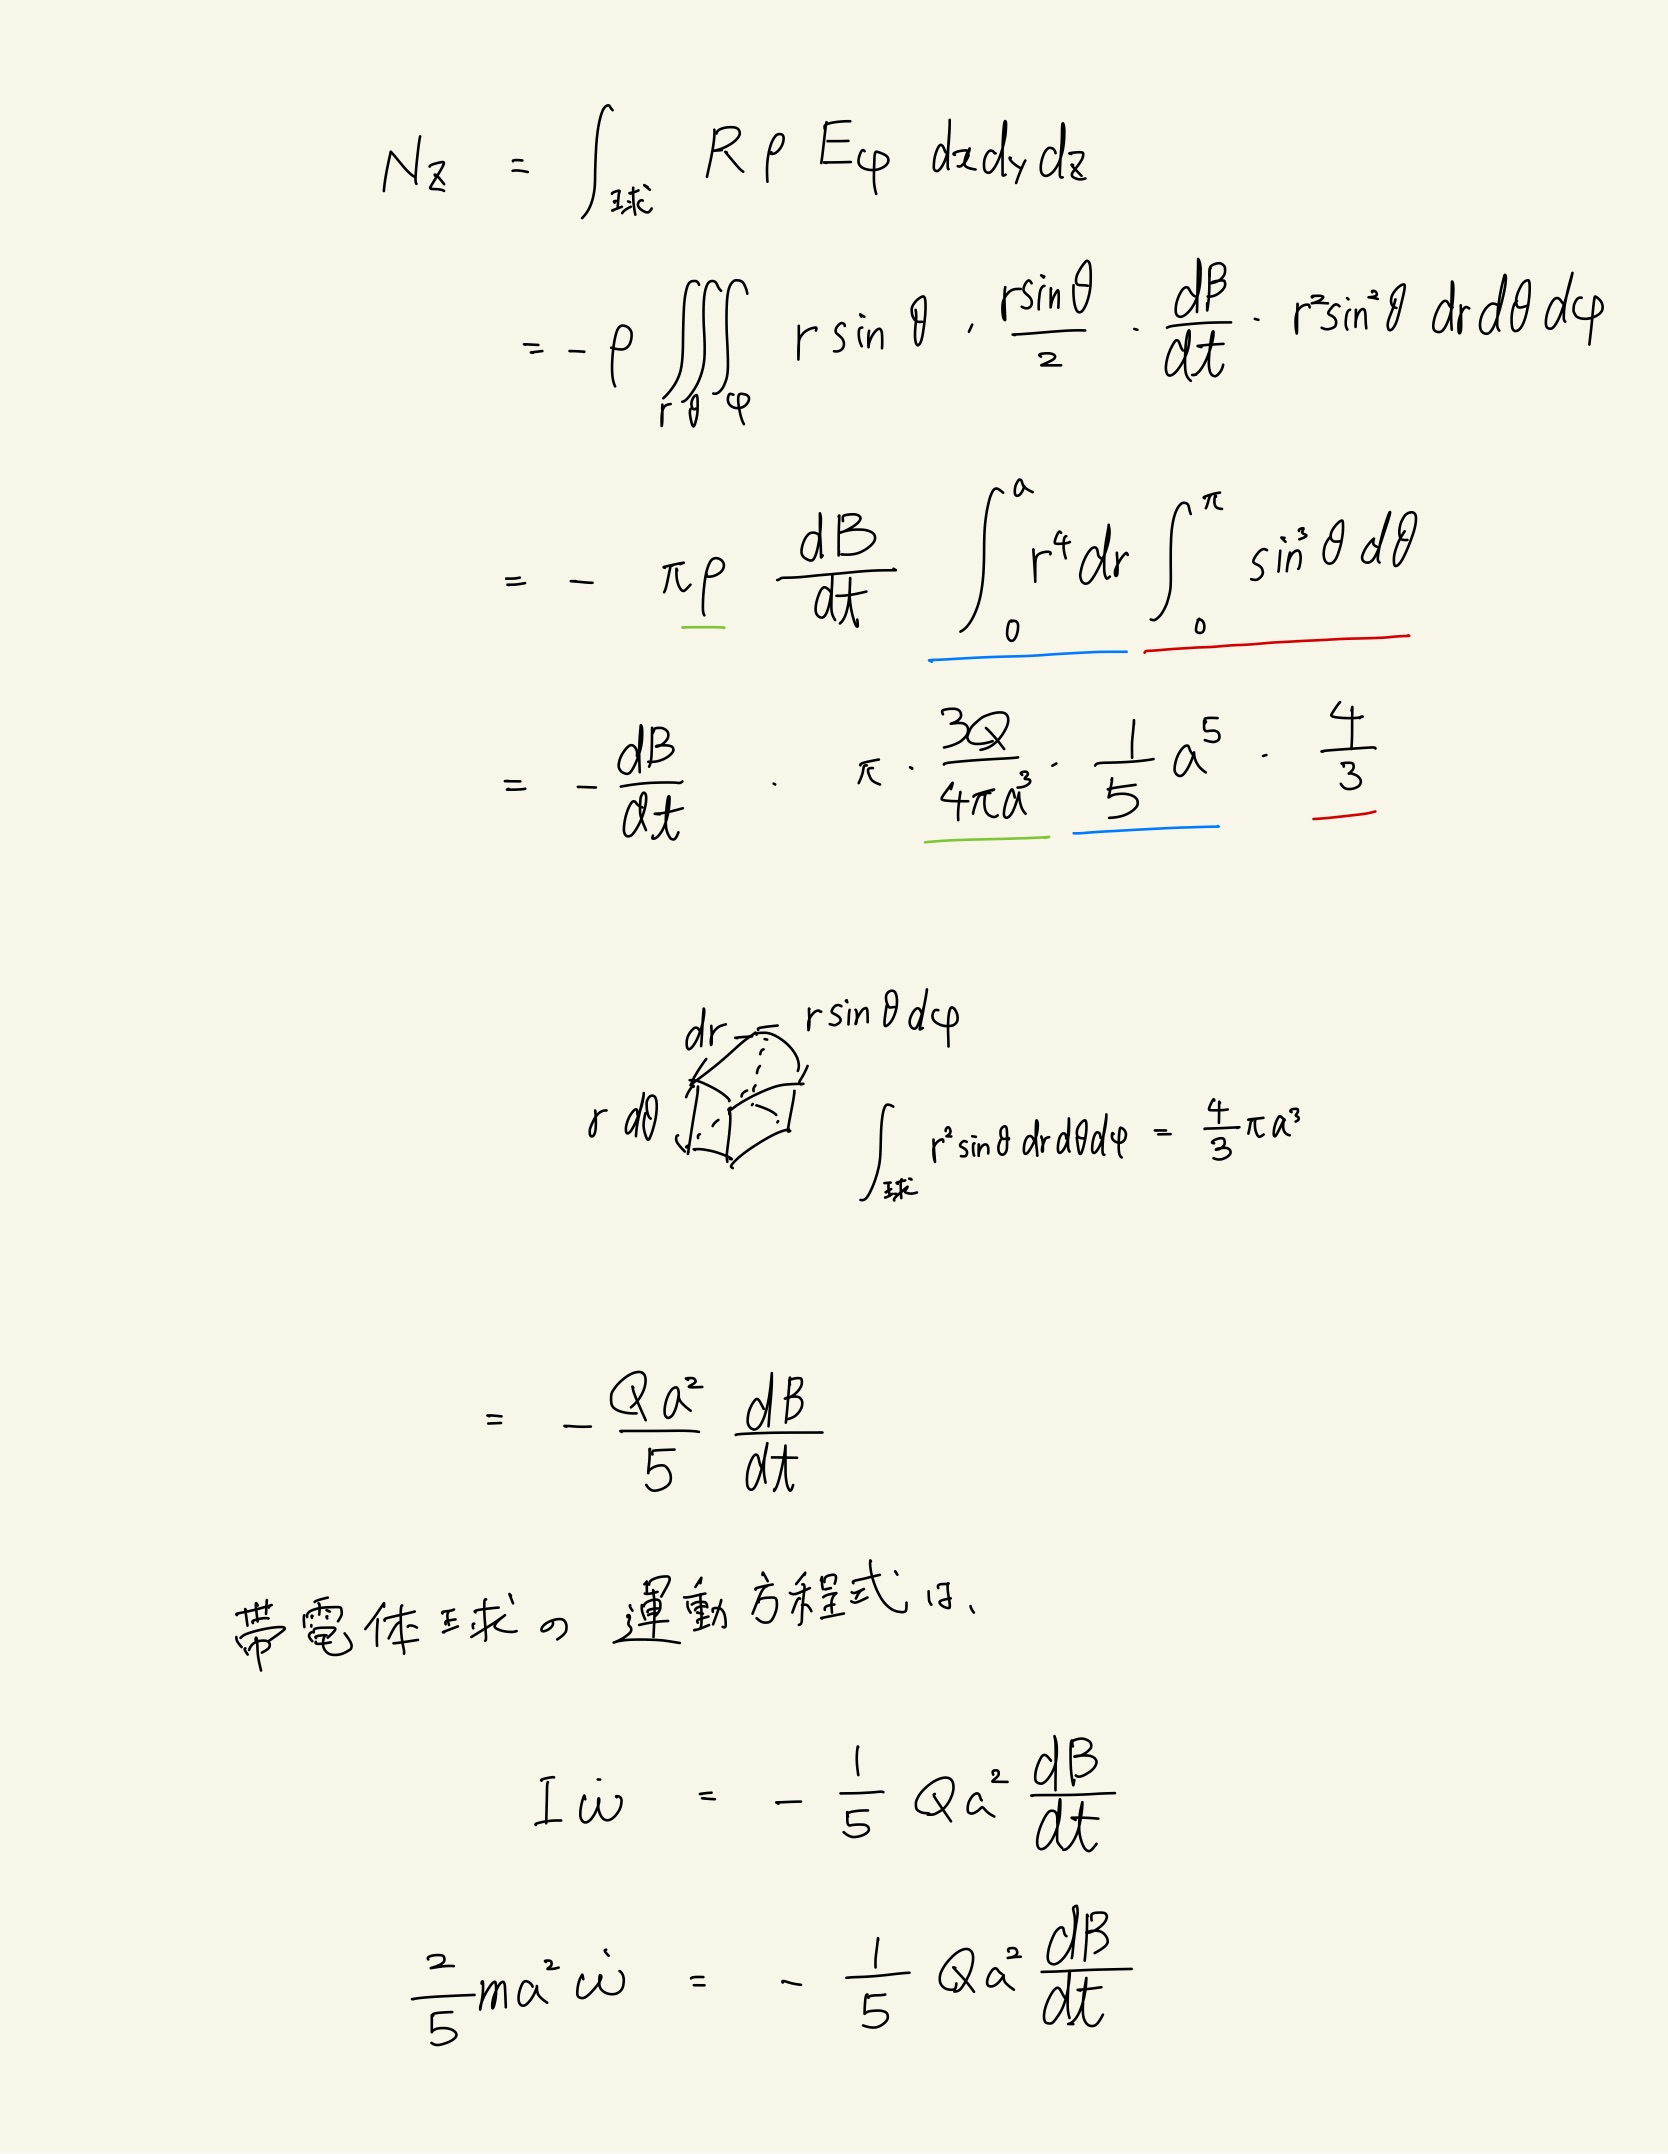 Nz = ∫球 R ρ Eφ dxdydz
= - ρ ∭r θ φ r sin θ · rsinθ/2 · dB/dt · r²sin²θ dr dθ dφ
= - πρ dB/dt ∫₀^a r⁴ dr ∫₀^π sin³θ dθ
= - dB/dt · π · 3Q/4πa³ · 1/5 a⁵ · 4/3
dr r sin θ dφ
r dθ
∫球 r² sinθ dr dθ dφ = 4/3 πa³
= - Qa²/5 dB/dt
帯電体球の運動方程式は、
I ω̇ = - 1/5 Qa² dB/dt
2/5 ma² ω̇ = - 1/5 Qa² dB/dt